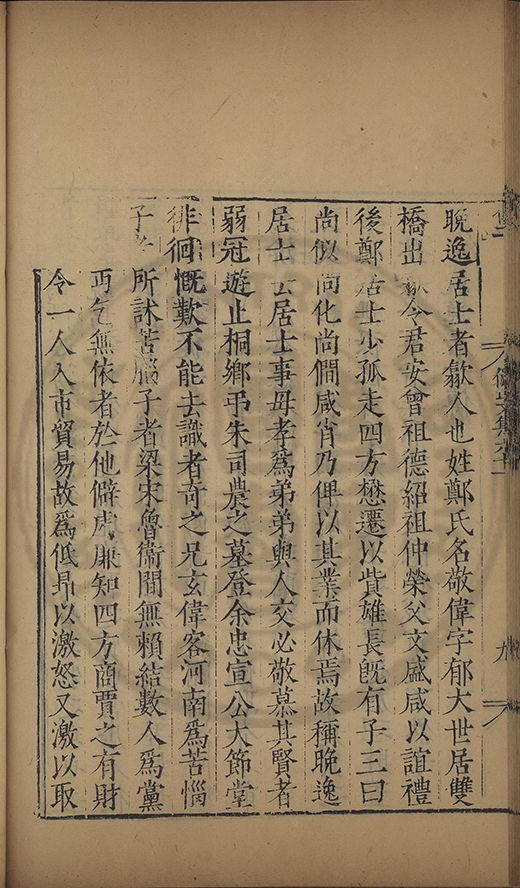 晚逸居士者歙人也姓鄭氏名敬偉字郁大世居雙
橋出歙令君安曾祖德紹祖仲榮父文盛咸以誼禮
後鄭居士少孤走四方懋遷以貲雄長旣有子三曰
尚似尚化尚僩咸肖乃俾以其業而休焉故稱晚逸
居士云居士事母孝爲弟弟與人交必敬慕其賢者
弱冠遊止桐鄉弔朱司農之墓登余忠宣公大節堂
徘徊慨歎不能去識者奇之兄玄偉客河南爲苦惱
子所訹苦惱子者梁宋魯衞間無賴結數人爲黨
丏乞無依者於他僻處廉知四方商賈之有財
令一人入市貿易故爲低昻以激怒又激以取
九